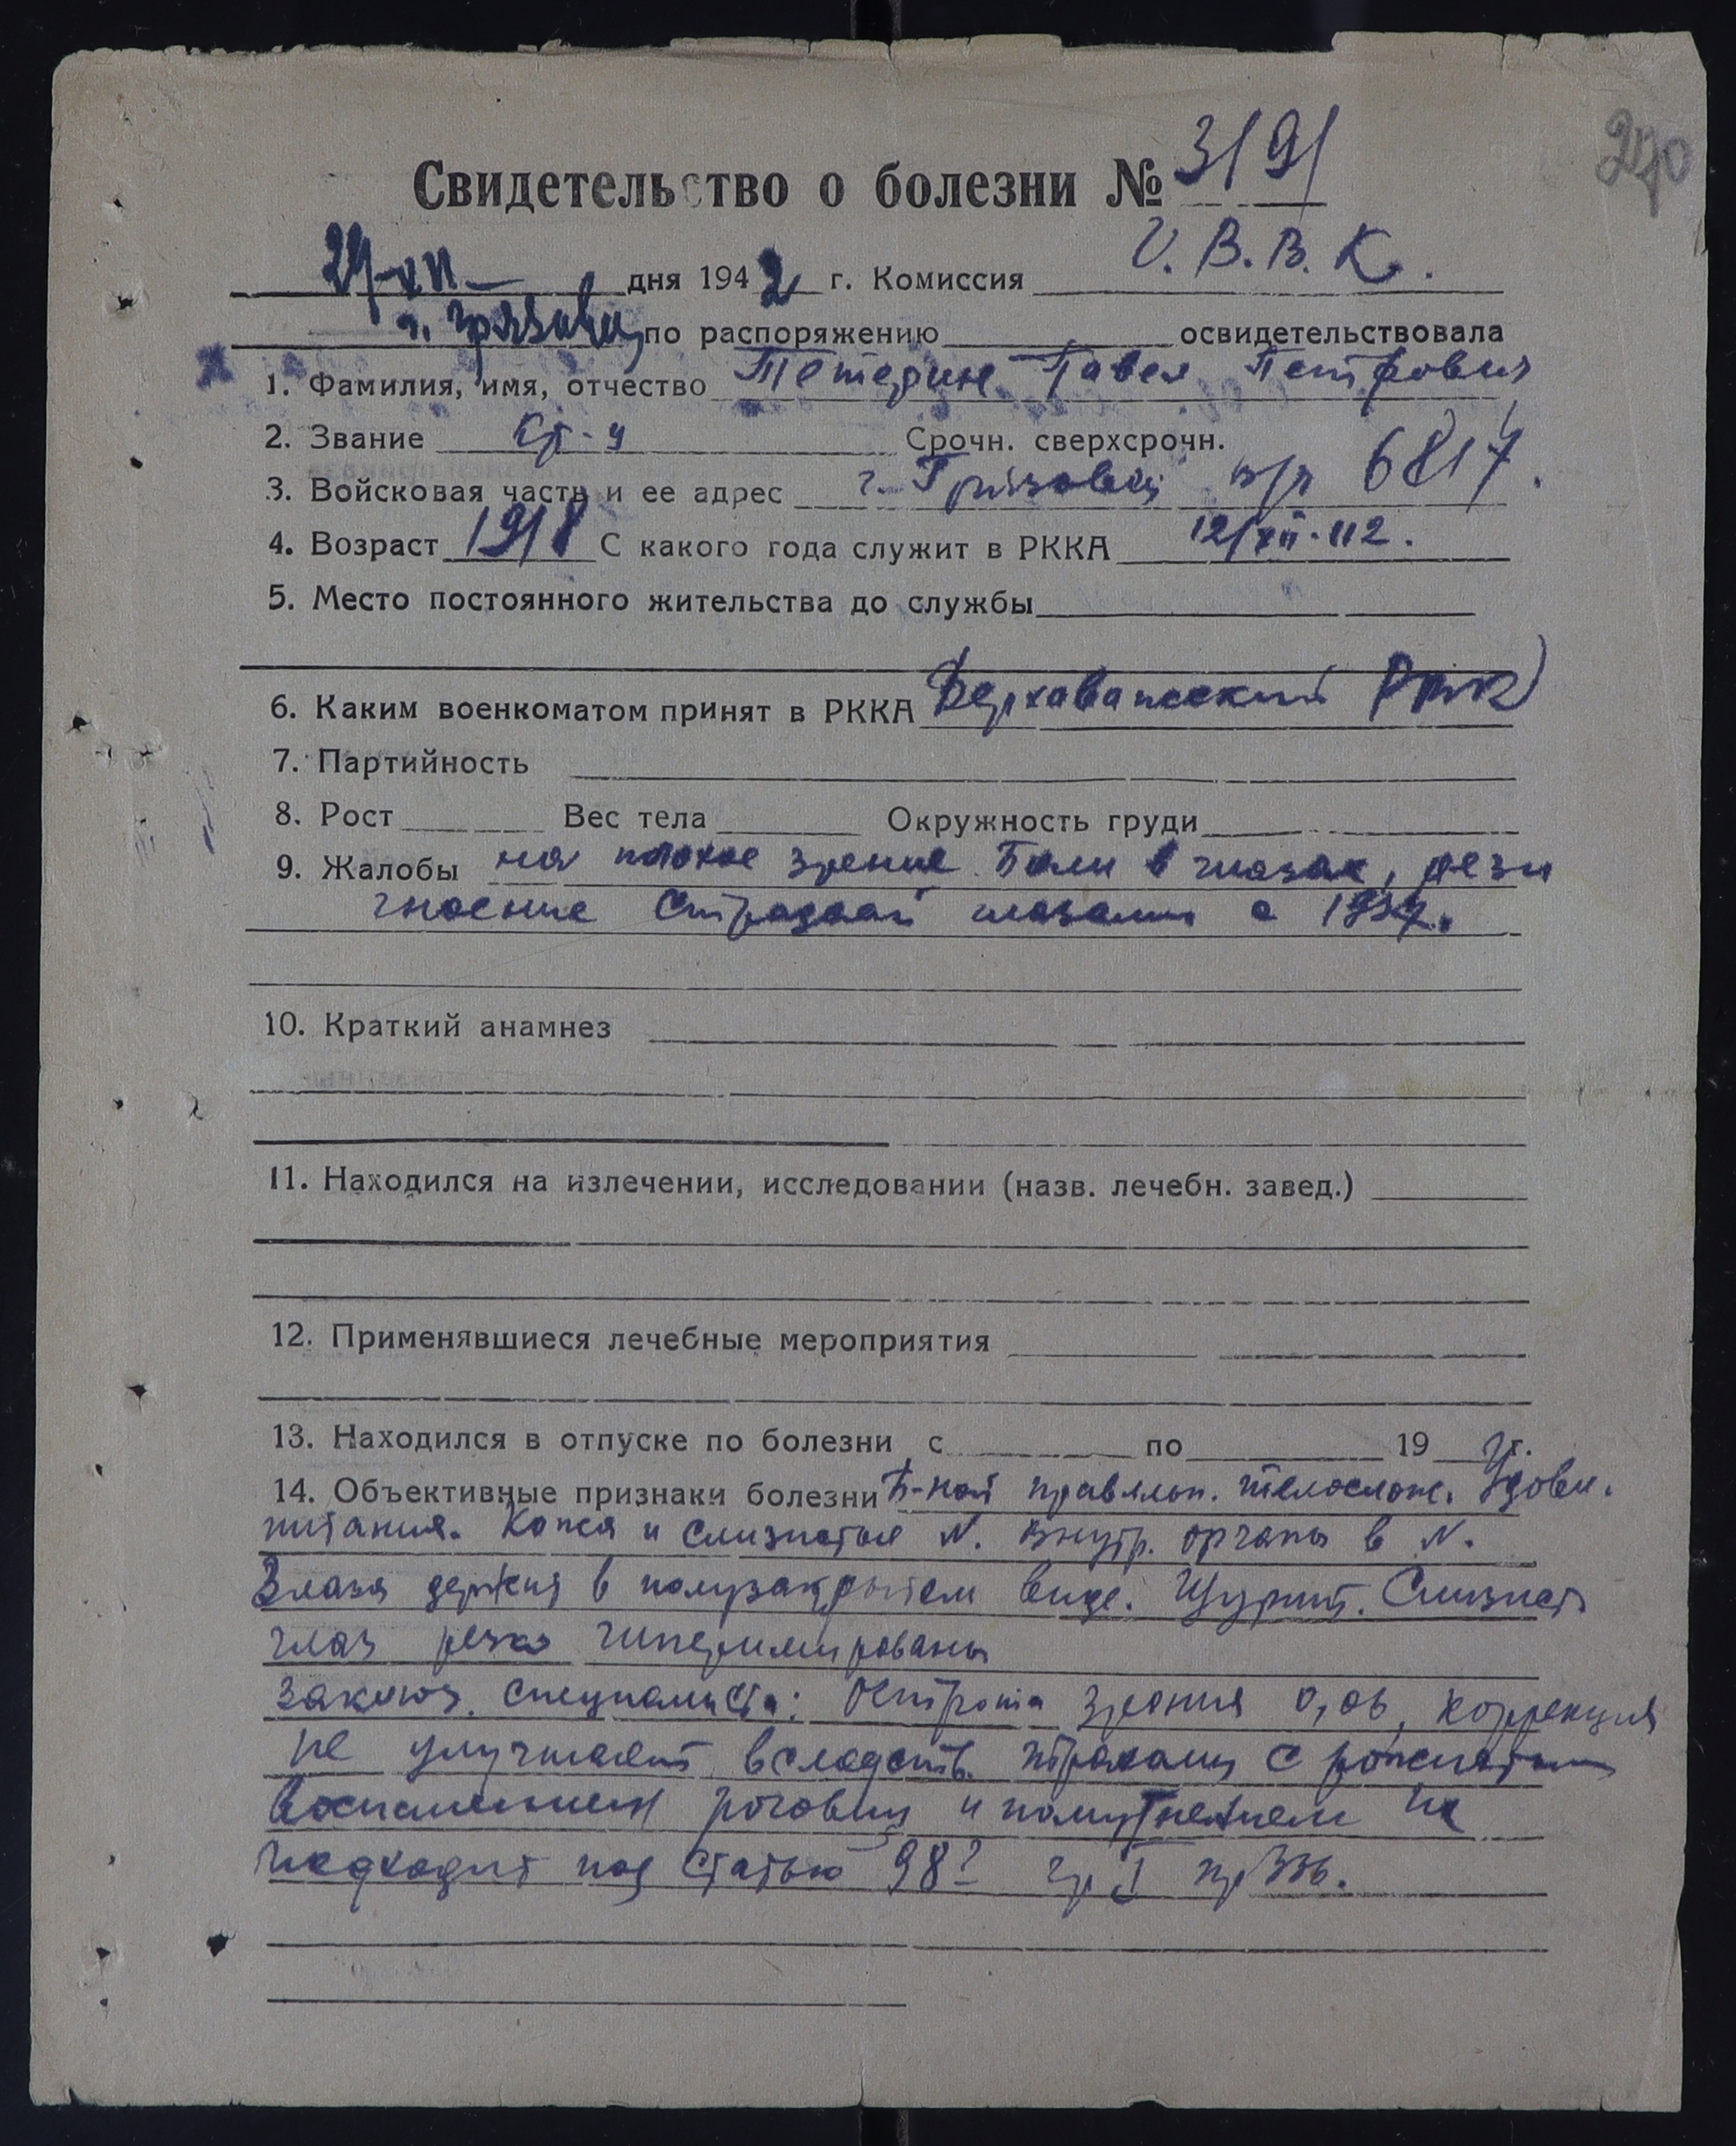 270
Свидетельство о болезни № 3191
29-XII- дня 1942 г. Комиссия Г.В.В.К.
г. Грязовец по распоряжению освидетельствовала
1. Фамилия, имя, отчество Тетерин Павел Петрович
2. Звание кр-ц Срочн. сверхсрочн.
3. Войсковая часть и ее адрес г. Грязовец п/я 6817.
4. Возраст 1918 С какого года служит в РККА 12/XII-42.
5. Место постоянного жительства до службы
6. Каким военкоматом принят в РККА Верховажский РВК
7. Партийность
8. Рост Вес тела Окружность груди
9. Жалобы на плохое зрение Боли в глазах, рези
гноение Страдает глазами с 1937.
10. Краткий анамнез
11. Находился на излечении, исследовании (назв. лечебн. завед.)
12. Применявшиеся лечебные мероприятия
13. Находился в отпуске по болезни с по 19 г.
14. Объективные признаки болезни Б-ной правильн. телослож. Удовл.
питания. Кожа и слизистые N. Внутр. органы в N.
Глаза держит в полузакрытом виде. Щурит. Слизист
глаз резко гиперемированы
Заключ. специалиста: Острота зрения 0,06, коррекция
не улучшает вследств. трахомы с
воспалением роговиц и помутнением их
подходит под статью 98 гр I пр 336.